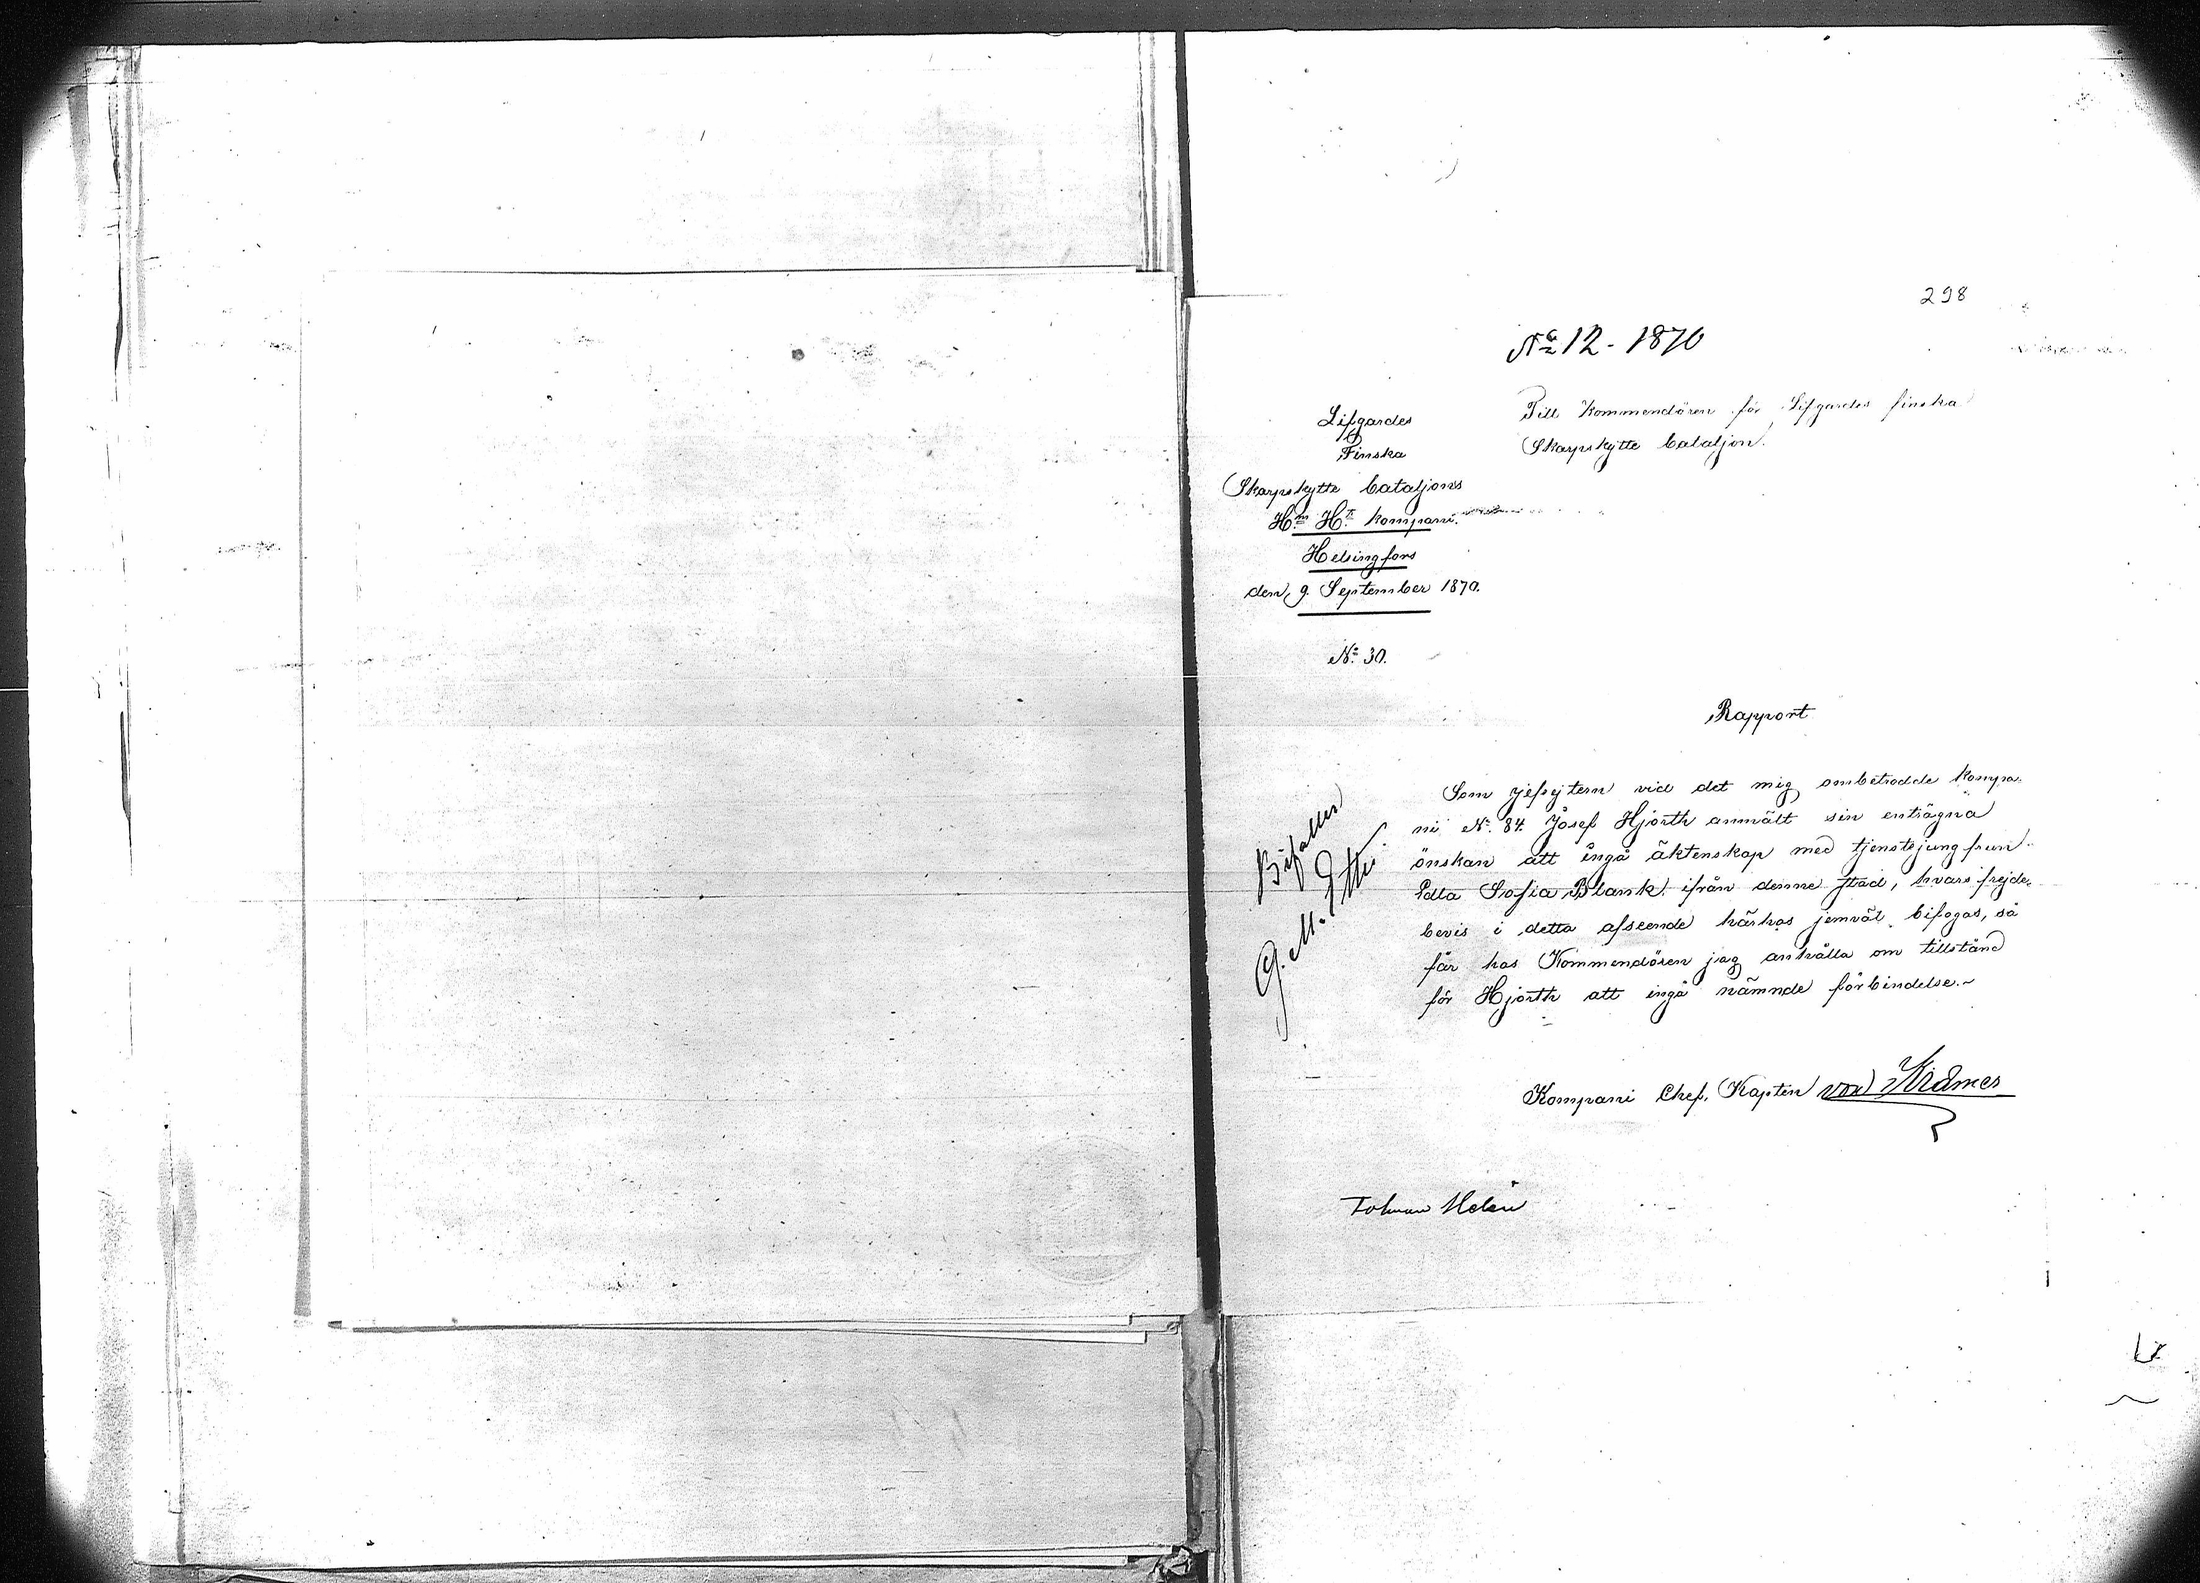 298
No 12 - 1870
Lifgardes
Finska
Skarpskytte bataljons
Hm Ht kompani.
Helsingfors
den 9 September 1870.
No 30.
Till Kommendören för Lifgardes finska
Skarpskytte bataljon.
Rapport
Som gefrejtern vid det mig ombetrodde kompa-
ni No 84. Josef Hjorth anmält sin enträgna
önskan att ingå äktenskap med tjenstejungfrun
Edla Sofia Blank ifrån denne stad, hvars frejde-
bevis i detta afseende härhos jemväl bifogas, så
får hos Kommendören jag anhålla om tillstånd
för Hjorth att ingå nämnde förbindelse.~
Bifalles
G. M.
Kompani Chef, Kapten von Kræmer